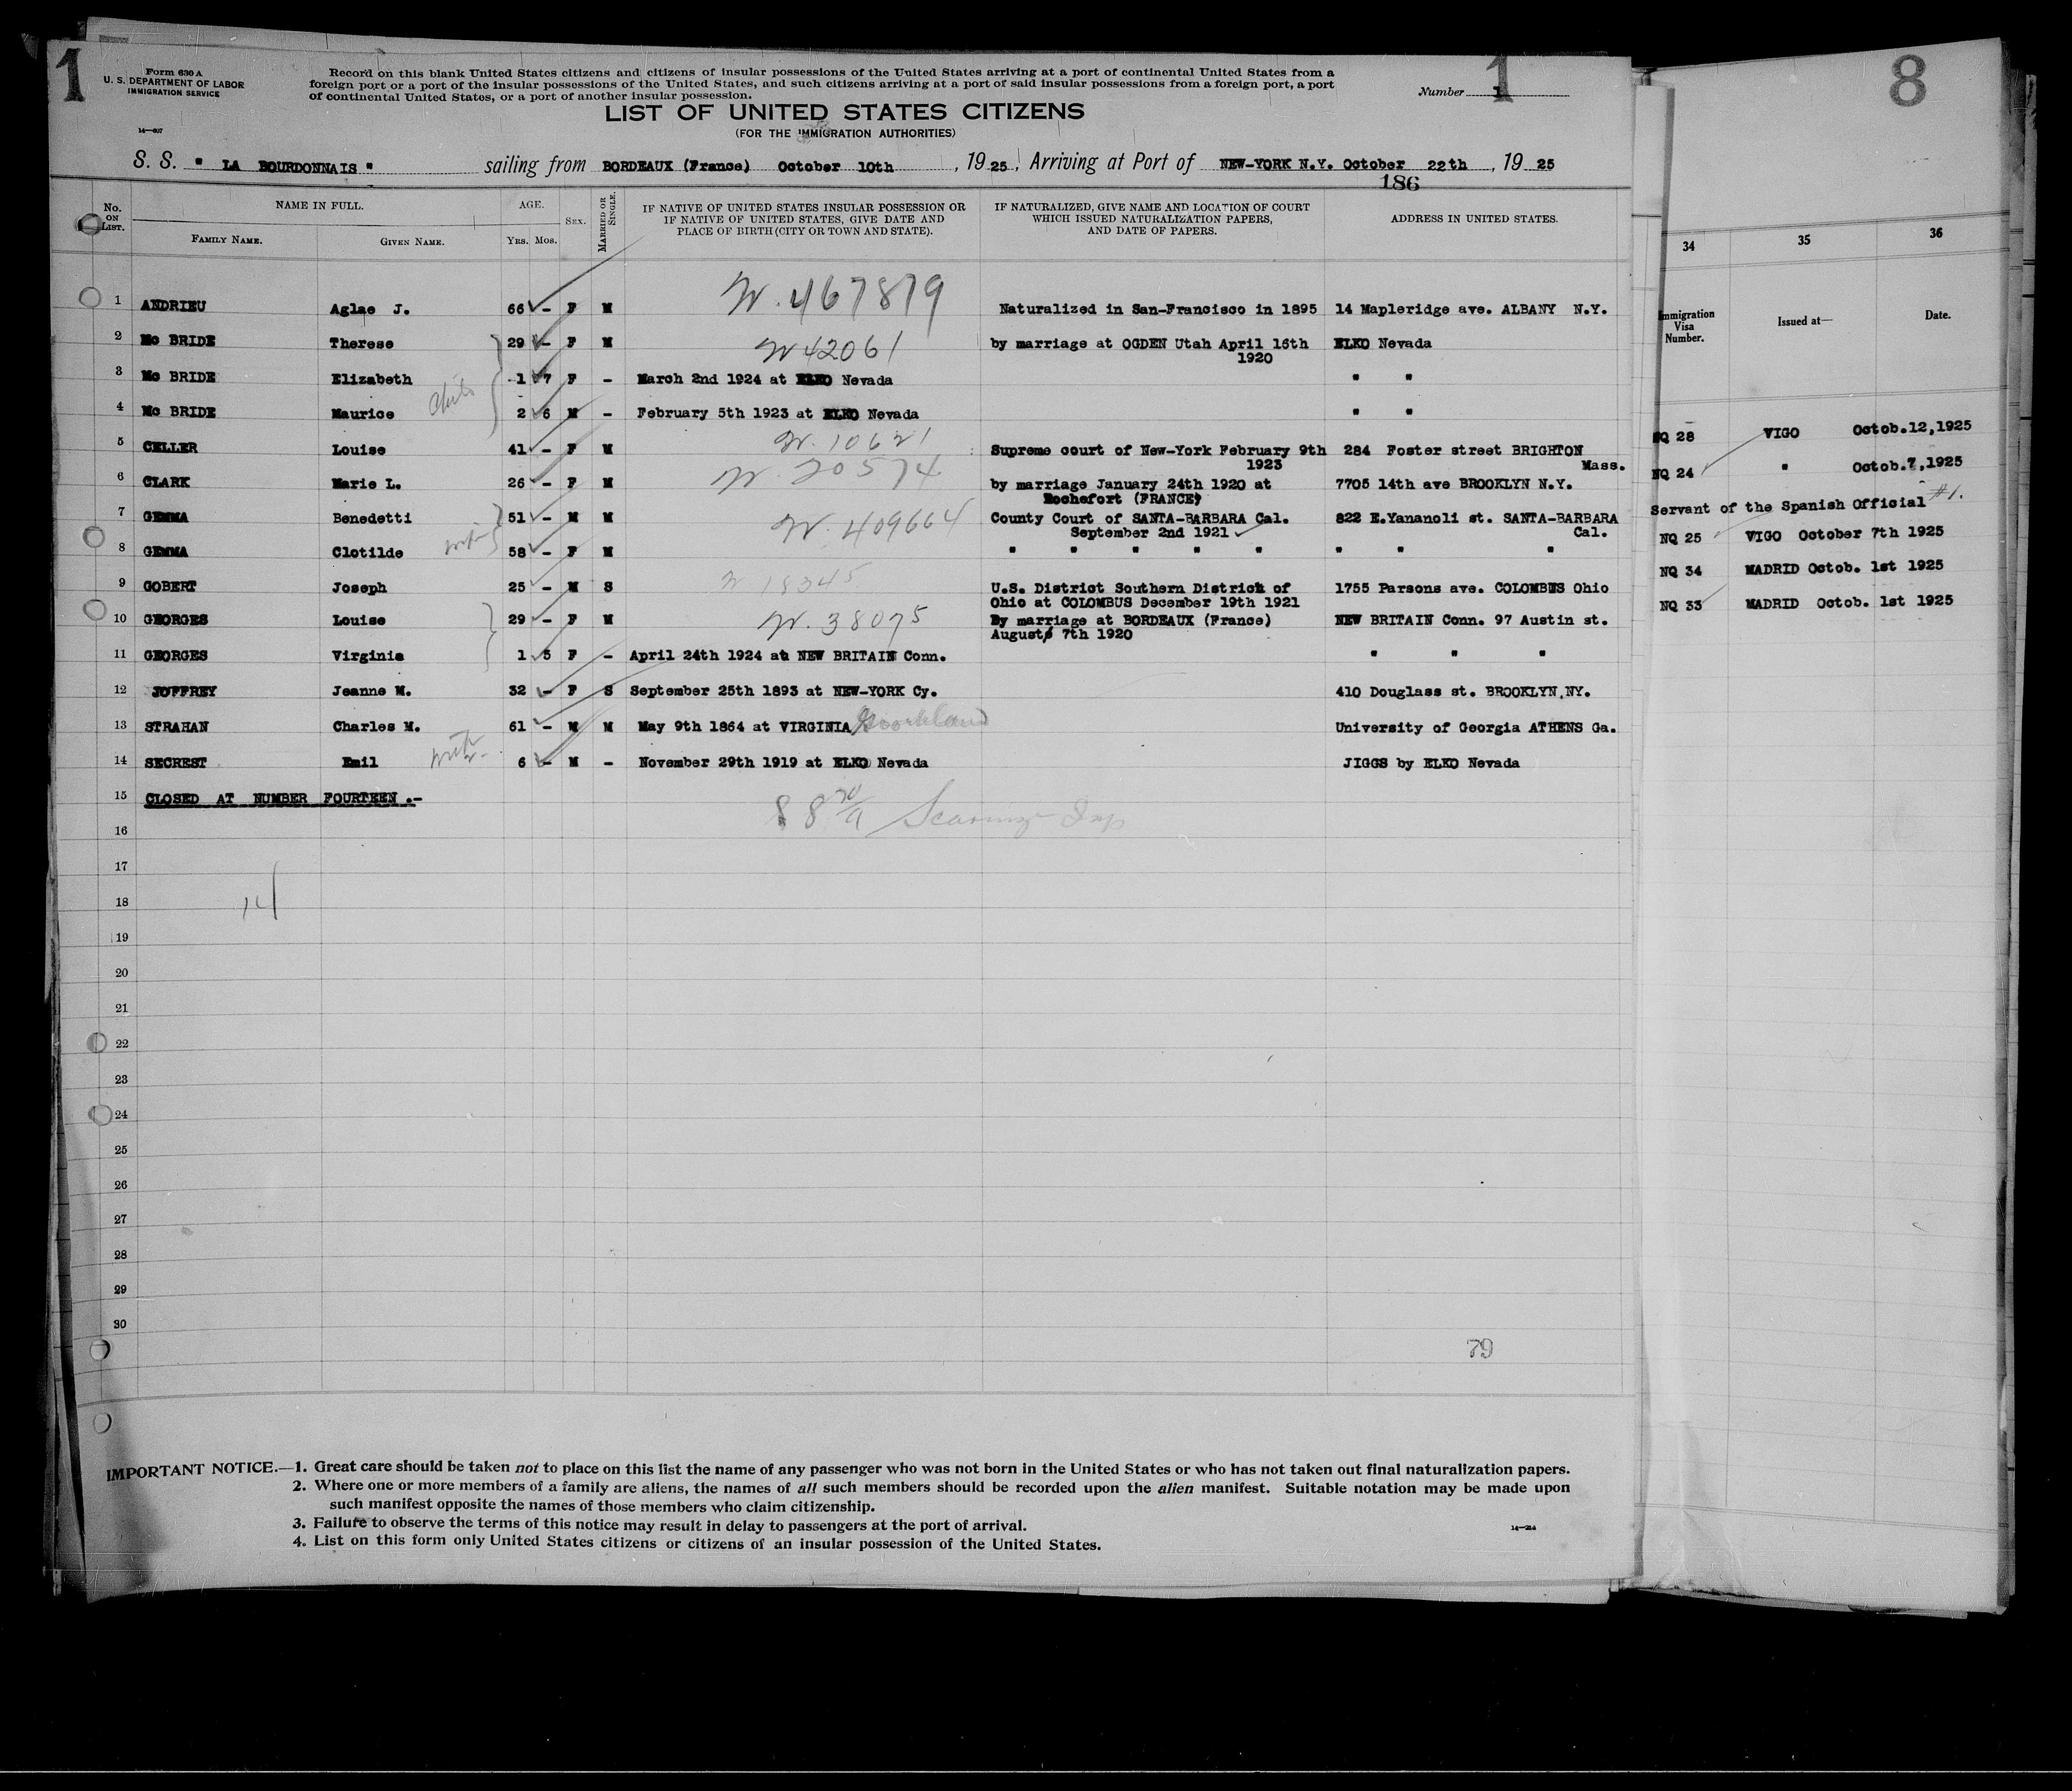 1
Form 630 A
U. S. DEPARTMENT OF LABOR
IMMIGRATION SERVICE
14—607
Record on this blank United States citizens and citizens of insular possessions of the United States arriving at a port of continental United States from a
foreign port or a port of the insular possessions of the United States, and such citizens arriving at a port of said insular possessions from a foreign port, a port
of continental United States, or a port of another insular possession.
Number 1
1
LIST OF UNITED STATES CITIZENS
(FOR THE IMMIGRATION AUTHORITIES)
S. S. " LA BOURDONNAIS " sailing from BORDEAUX (France) October 10th , 19 25, Arriving at Port of NEW-YORK N.Y. October 22th , 19 25
186
No. ON LIST. NAME IN FULL. FAMILY NAME. GIVEN NAME. AGE. YRS. MOS. SEX. MARRIED OR SINGLE. IF NATIVE OF UNITED STATES INSULAR POSSESSION OR IF NATIVE OF UNITED STATES, GIVE DATE AND PLACE OF BIRTH (CITY OR TOWN AND STATE). IF NATURALIZED, GIVE NAME AND LOCATION OF COURT WHICH ISSUED NATURALIZATION PAPERS, AND DATE OF PAPERS. ADDRESS IN UNITED STATES.
1 ANDRIEU Aglae J. 66 - F M 467879 Naturalized in San-Francisco in 1895 14 Mapleridge ave. ALBANY N.Y.
2 Mc BRIDE Therese 29 - F M 42061 by marriage at OGDEN Utah April 16th 1920 ELKO Nevada
3 Mc BRIDE Elizabeth 1 7 F - March 2nd 1924 at ELKO Nevada " "
4 Mc BRIDE Maurice 2 6 M - February 5th 1923 at ELKO Nevada " "
5 CELLER Louise 41 - F M 10621 Supreme court of New-York February 9th 1923 284 Foster street BRIGHTON Mass.
6 CLARK Marie L. 26 - F M 20574 by marriage January 24th 1920 at Rochefort (FRANCE) 7705 14th ave BROOKLYN N.Y.
7 GEMMA Benedetti 51 - M M 409664 County Court of SANTA-BARBARA Cal. September 2nd 1921 822 E.Yananoli st. SANTA-BARBARA Cal.
8 GEMMA Clotilde 58 - F M " " " " " " " "
9 GOBERT Joseph 25 - M S 18345 U.S. District Southern District of Ohio at COLOMBUS December 19th 1921 1755 Parsons ave. COLOMBUS Ohio
10 GEORGES Louise 29 - F M 38075 By marriage at BORDEAUX (France) August 7th 1920 NEW BRITAIN Conn. 97 Austin st.
11 GEORGES Virginia 1 5 F - April 24th 1924 at NEW BRITAIN Conn. " " "
12 JOFFREY Jeanne M. 32 - F S September 25th 1893 at NEW-YORK Cy. 410 Douglass st. BROOKLYN,NY.
13 STRAHAN Charles M. 61 - M M May 9th 1864 at VIRGINIA University of Georgia ATHENS Ga.
14 SECREST Emil 6 - M - November 29th 1919 at ELKO Nevada JIGGS by ELKO Nevada
15 CLOSED AT NUMBER FOURTEEN .-
16
17
18
14
19
20
21
22
23
24
25
26
27
28
29
30
79
IMPORTANT NOTICE.—1. Great care should be taken not to place on this list the name of any passenger who was not born in the United States or who has not taken out final naturalization papers.
2. Where one or more members of a family are aliens, the names of all such members should be recorded upon the alien manifest. Suitable notation may be made upon
such manifest opposite the names of those members who claim citizenship.
3. Failure to observe the terms of this notice may result in delay to passengers at the port of arrival.
4. List on this form only United States citizens or citizens of an insular possession of the United States.
8
34 35 36
Immigration Visa Number. Issued at— Date.
NQ 28 VIGO Octob.12,1925
NQ 24 " Octob.7,1925
Servant of the Spanish Official #1.
NQ 25 VIGO October 7th 1925
NQ 34 MADRID Octob. 1st 1925
NQ 33 MADRID Octob. 1st 1925